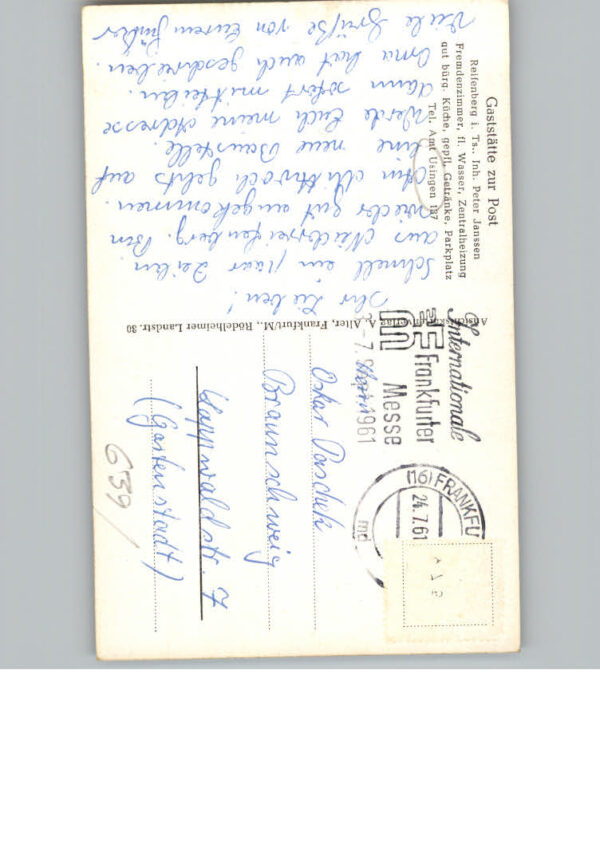 Gaststätte zur Post
Reifenberg i. Ts., Inh. Peter Janssen
Fremdenzimmer, fl. Wasser, Zentralheizung
gut bürg. Küche, gepfl. Getränke, Parkplatz
Tel. Amt Usingen 187
Ihr Lieben!
Schnell ein paar Zeilen
aus Niederreifenberg. Bin
wieder gut angekommen.
Am Mittwoch gehts auf
eine neue Baustelle.
Werde Euch meine Adresse
dann sofort mitteilen.
Oma hat auch geschrieben.
Viele Grüße von Eurem
Ansichtskartenverlag A. Alter, Frankfurt/M., Rödelheimer Landstr. 30
Internationale
Frankfurter
Messe
1961
(16) FRANKFU
24.7.61
Oskar Paschek
Braunschweig
Lappwaldstr. 7
(Gartenstadt)
639/